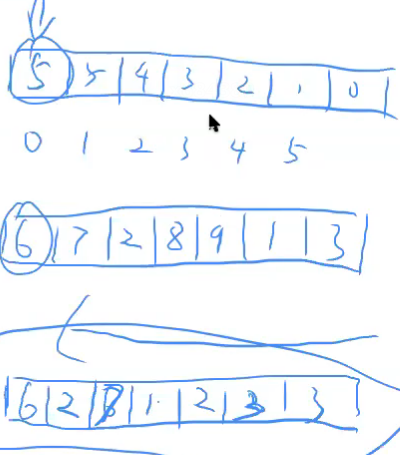 5 5 4 3 2 1 0
0 1 2 3 4 5
6 7 2 8 9 1 3
6 2 1 2 3 3